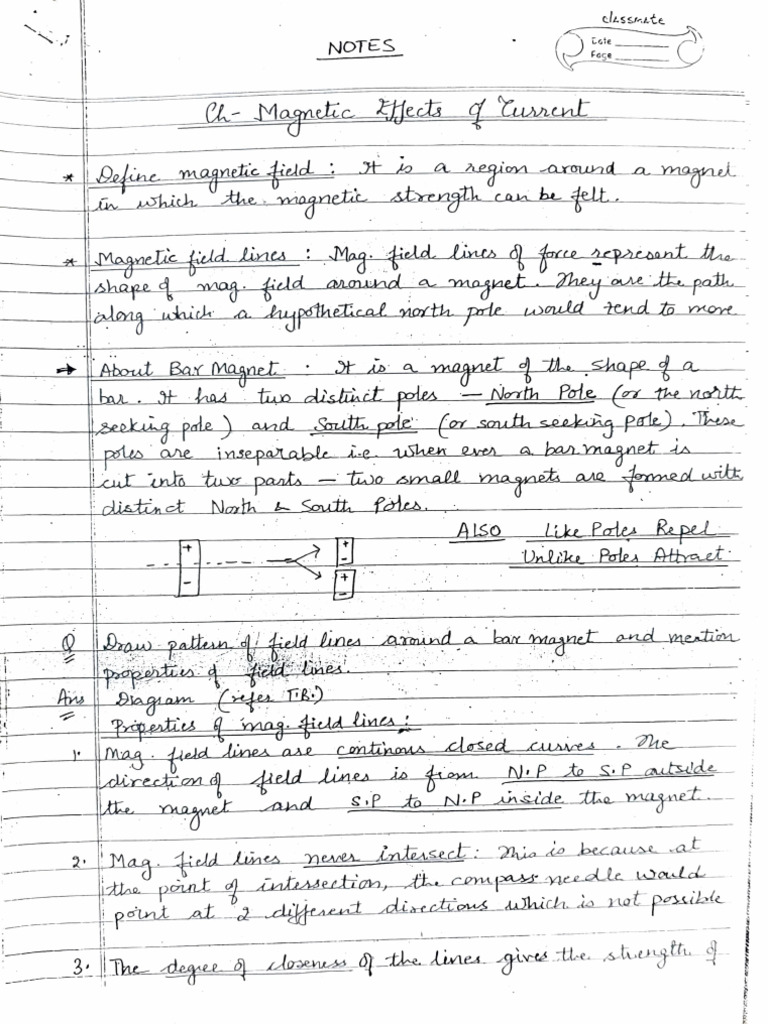 classmate
Date
Page
NOTES
Ch- Magnetic Effects of Current
* Define magnetic field : It is a region around a magnet
in which the magnetic strength can be felt.
* Magnetic field lines : Mag. field lines of force represent the
shape of mag. field around a magnet. They are the path
along which a hypothetical north pole would tend to move
→ About Bar Magnet : It is a magnet of the shape of a
bar. It has two distinct poles — North Pole (or the north
seeking pole) and South pole (or south seeking pole). These
poles are inseparable i.e. when ever a bar magnet is
cut into two parts – two small magnets are formed with
distinct North & South Poles.
ALSO Like Poles Repel
Unlike Poles Attract
+ +
- -
+
-
Q Draw pattern of field lines around a bar magnet and mention
properties of field lines.
Ans Diagram (refer T.B.)
Properties of mag. field lines :
1. Mag. field lines are continous closed curves. The
direction of field lines is from N.P to S.P outside
the magnet and S.P to N.P inside the magnet.
2. Mag. field lines never intersect : This is because at
the point of intersection, the compass needle would
point at 2 different directions which is not possible
3. The degree of closeness of the lines gives the strength of